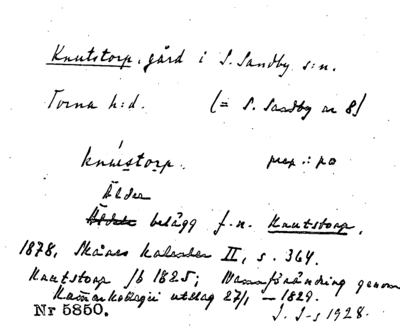 Knutstorp, gård i S. Sandby s:n.
Torna h:d. (= S. Sandby nr 8)
knústorp. prep.: på
Äldre
Äldste belägg f. n. Knutstorp,
1878, Skånes Kalender II, s. 364.
Knutstorp jb 1825; Namnförändring genom
Kammarkollegii utslag 27/1 – 1829.
Nr 5850. J. J-s 1928.